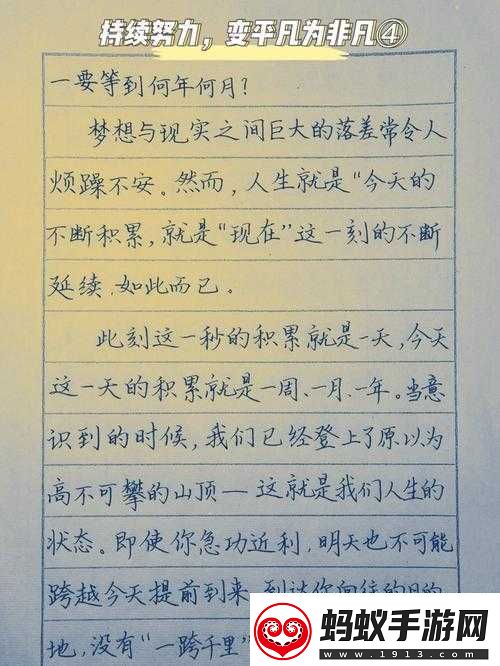 持续努力，变平凡为非凡④
一要等到何年何月？
梦想与现实之间巨大的落差常令人
烦躁不安。然而，人生就是“今天的
不断积累，就是“现在”这一刻的不断
延续，如此而已。
此刻这一秒的积累就是一天，今天
这一天的积累就是一周、一月、一年。当意
识到的时候，我们已经登上了原以为
高不可攀的山顶—这就是我们人生的
状态。即使你急功近利，明天也不可能
跨越今天提前到来。到达你向往的目的
地，没有“一跨千里”
蚂蚁手游网
www.1913.com